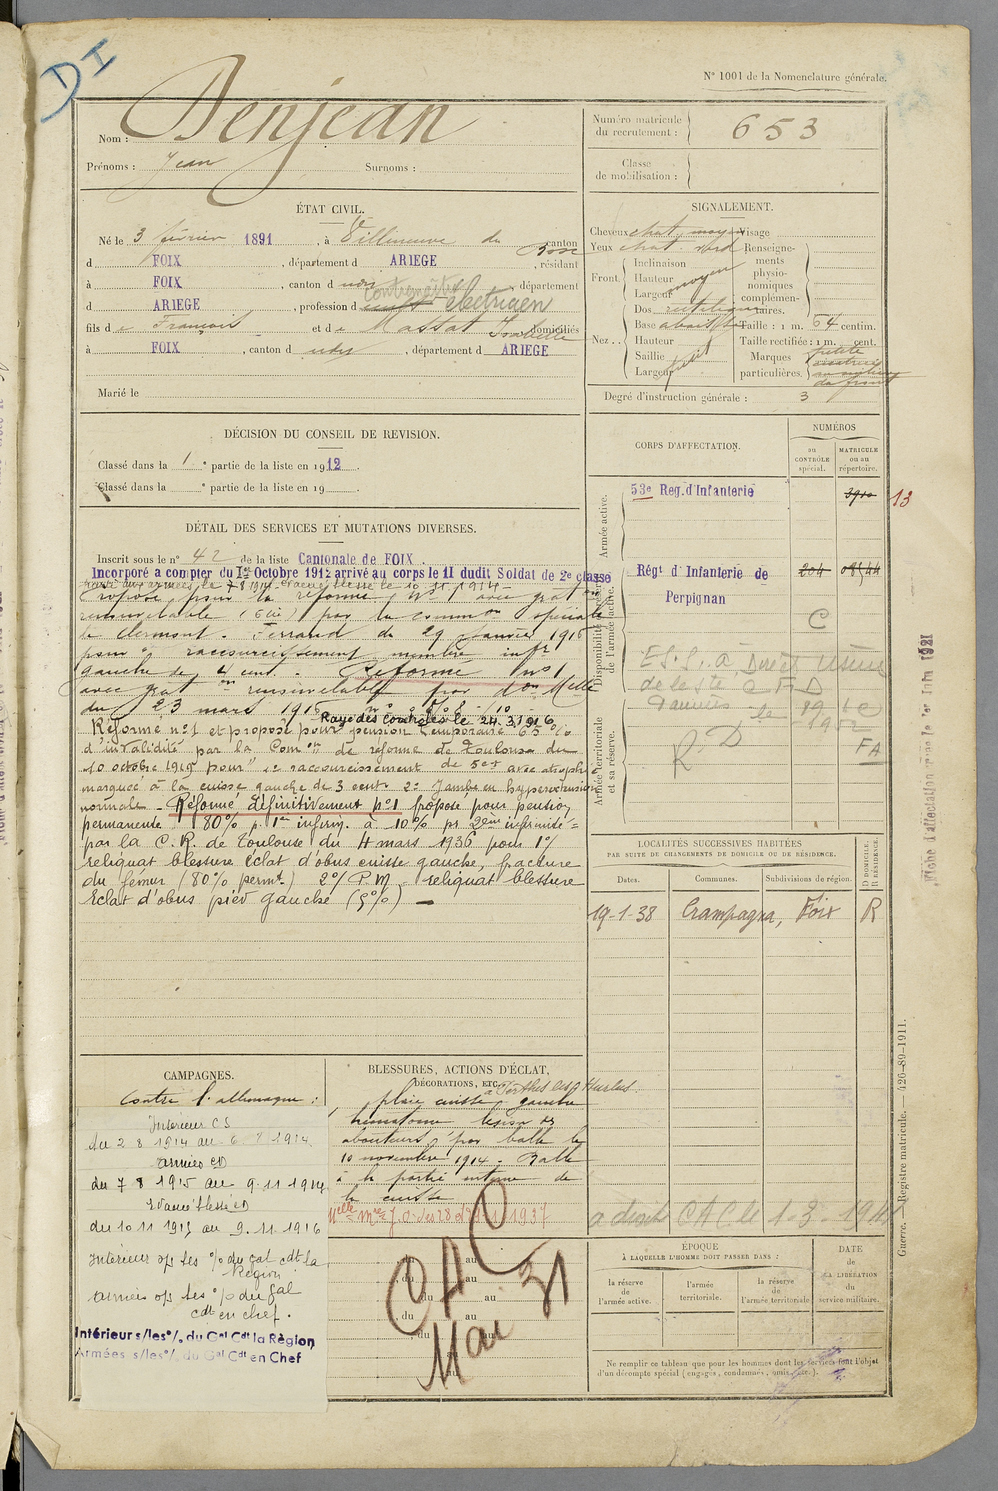 DI
N° 1001 de la Nomenclature générale.
Nom : Denjean
Prénoms : Jean Surnoms :
Numéro matricule du recrutement : 653
Classe de mobilisation :
ÉTAT CIVIL.
Né le 3 février 1891, à Villeneuve du Bosc canton
d FOIX, département d ARIEGE, résidant
à FOIX, canton d udit, département
d ARIEGE, profession d électricien
fils de François et de Massat Isabelle domiciliés
à FOIX, canton d udit, département d ARIEGE
Marié le
SIGNALEMENT.
Cheveux chat. moyen Visage
Yeux chat. verd
Renseignements physionomiques complémentaires.
Front
Inclinaison
Hauteur moyen
Largeur
Nez
Dos rectiligne
Base abaissée
Hauteur
Saillie
Largeur petit
Taille : 1 m. 64 centim.
Taille rectifiée : 1 m. cent.
Marques particulières. petite cicatrice au milieu du front
Degré d'instruction générale : 3
DÉCISION DU CONSEIL DE REVISION.
Classé dans la 1e partie de la liste en 1912
Classé dans la e partie de la liste en 19
CORPS D'AFFECTATION.
NUMÉROS
au CONTRÔLE spécial.
MATRICULE ou au répertoire.
Armée active.
53e Reg. d'Infanterie 3910 13
Disponibilité et réserve de l'armée active.
Régt d'Infanterie de Perpignan 204 08544
C
E.S. à
de le Sté
Pamiers
FA
RD
Armée territoriale et sa réserve.
DÉTAIL DES SERVICES ET MUTATIONS DIVERSES.
Inscrit sous le n° 42 de la liste Cantonale de FOIX.
Incorporé a compter du 1er Octobre 1912 arrivé au corps le 11 dudit Soldat de 2e classe
Proposé pour la réforme n° 1 avec grat on
renouvelable (6e) par la common spéciale
de Clermont-Ferrand du 29 janvier 1916
pour raccourcissement membre infr
gauche de 4 cent. Réformé n° 1
avec grat on renouvelable par don Melle
du 23 mars 1916
Rayé des contrôles le 24.3.1916
Réformé n°1 et proposé pour pension temporaire 65%
d'invalidité par la Comon de réforme de Toulouse du
10 octobre 1919 pour 1e raccourcissement de 5cr avec atrophie
marquée à la cuisse gauche de 3 centr 2e Jambe en hyperextension
normale - Réformé définitivement n°1 proposé pour pension
permanente 80% pr 1ère infirm. à 10% pr 2ème infirmité =
par la C.R. de Toulouse du 4 mars 1936 pour 1°/
reliquat blessure éclat d'obus cuisse gauche, fracture
du fémur (80% permt) 2°/ P.M. reliquat blessure
éclat d'obus pied gauche (5%) —
LOCALITÉS SUCCESSIVES HABITÉES
PAR SUITE DE CHANGEMENTS DE DOMICILE OU DE RÉSIDENCE.
Dates. Communes. Subdivisions de région. D DOMICILE. R RÉSIDENCE.
19-1-38 Crampagna, Foix R
CAC le 1-3-194
CAMPAGNES.
Contre l'allemagne :
Intérieur CS
du 2 8 1914 au 6 8 1914
armées CD
du 7 8 1915 au 9 11 1914
Evacué blessé CD
du 10 11 1915 au 9.11.1916
Intérieur op ses % du Gal cdt la Région
armées op ses % du Gal cdt en chef.
Intérieur s/les°/. du Gal Cdt la Région
Armées s/les°/. du Gal Cdt en Chef
BLESSURES, ACTIONS D'ÉCLAT,
DÉCORATIONS, ETC.
à Perthes les Hurlus
plaie cuisse gauche
hématome lésion os
par balle le
10 novembre 1914. Balle
à la partie interne de
la cuisse
Melle Mre J.O. des 28 et 29 1 1937
du au
du au
du au
du au
du au
CAC
Mai 31
ÉPOQUE
À LAQUELLE L'HOMME DOIT PASSER DANS :
la réserve de l'armée active.
l'armée territoriale.
la réserve de l'armée territoriale
DATE de LA LIBÉRATION du service militaire.
Ne remplir ce tableau que pour les hommes dont les services font l'objet
d'un décompte spécial (engagés, condamnés, omis, etc.).
Fiche d'affectation mise le 1er Juin 1921
Guerre. — Registre matricule. — 426-89-1911.